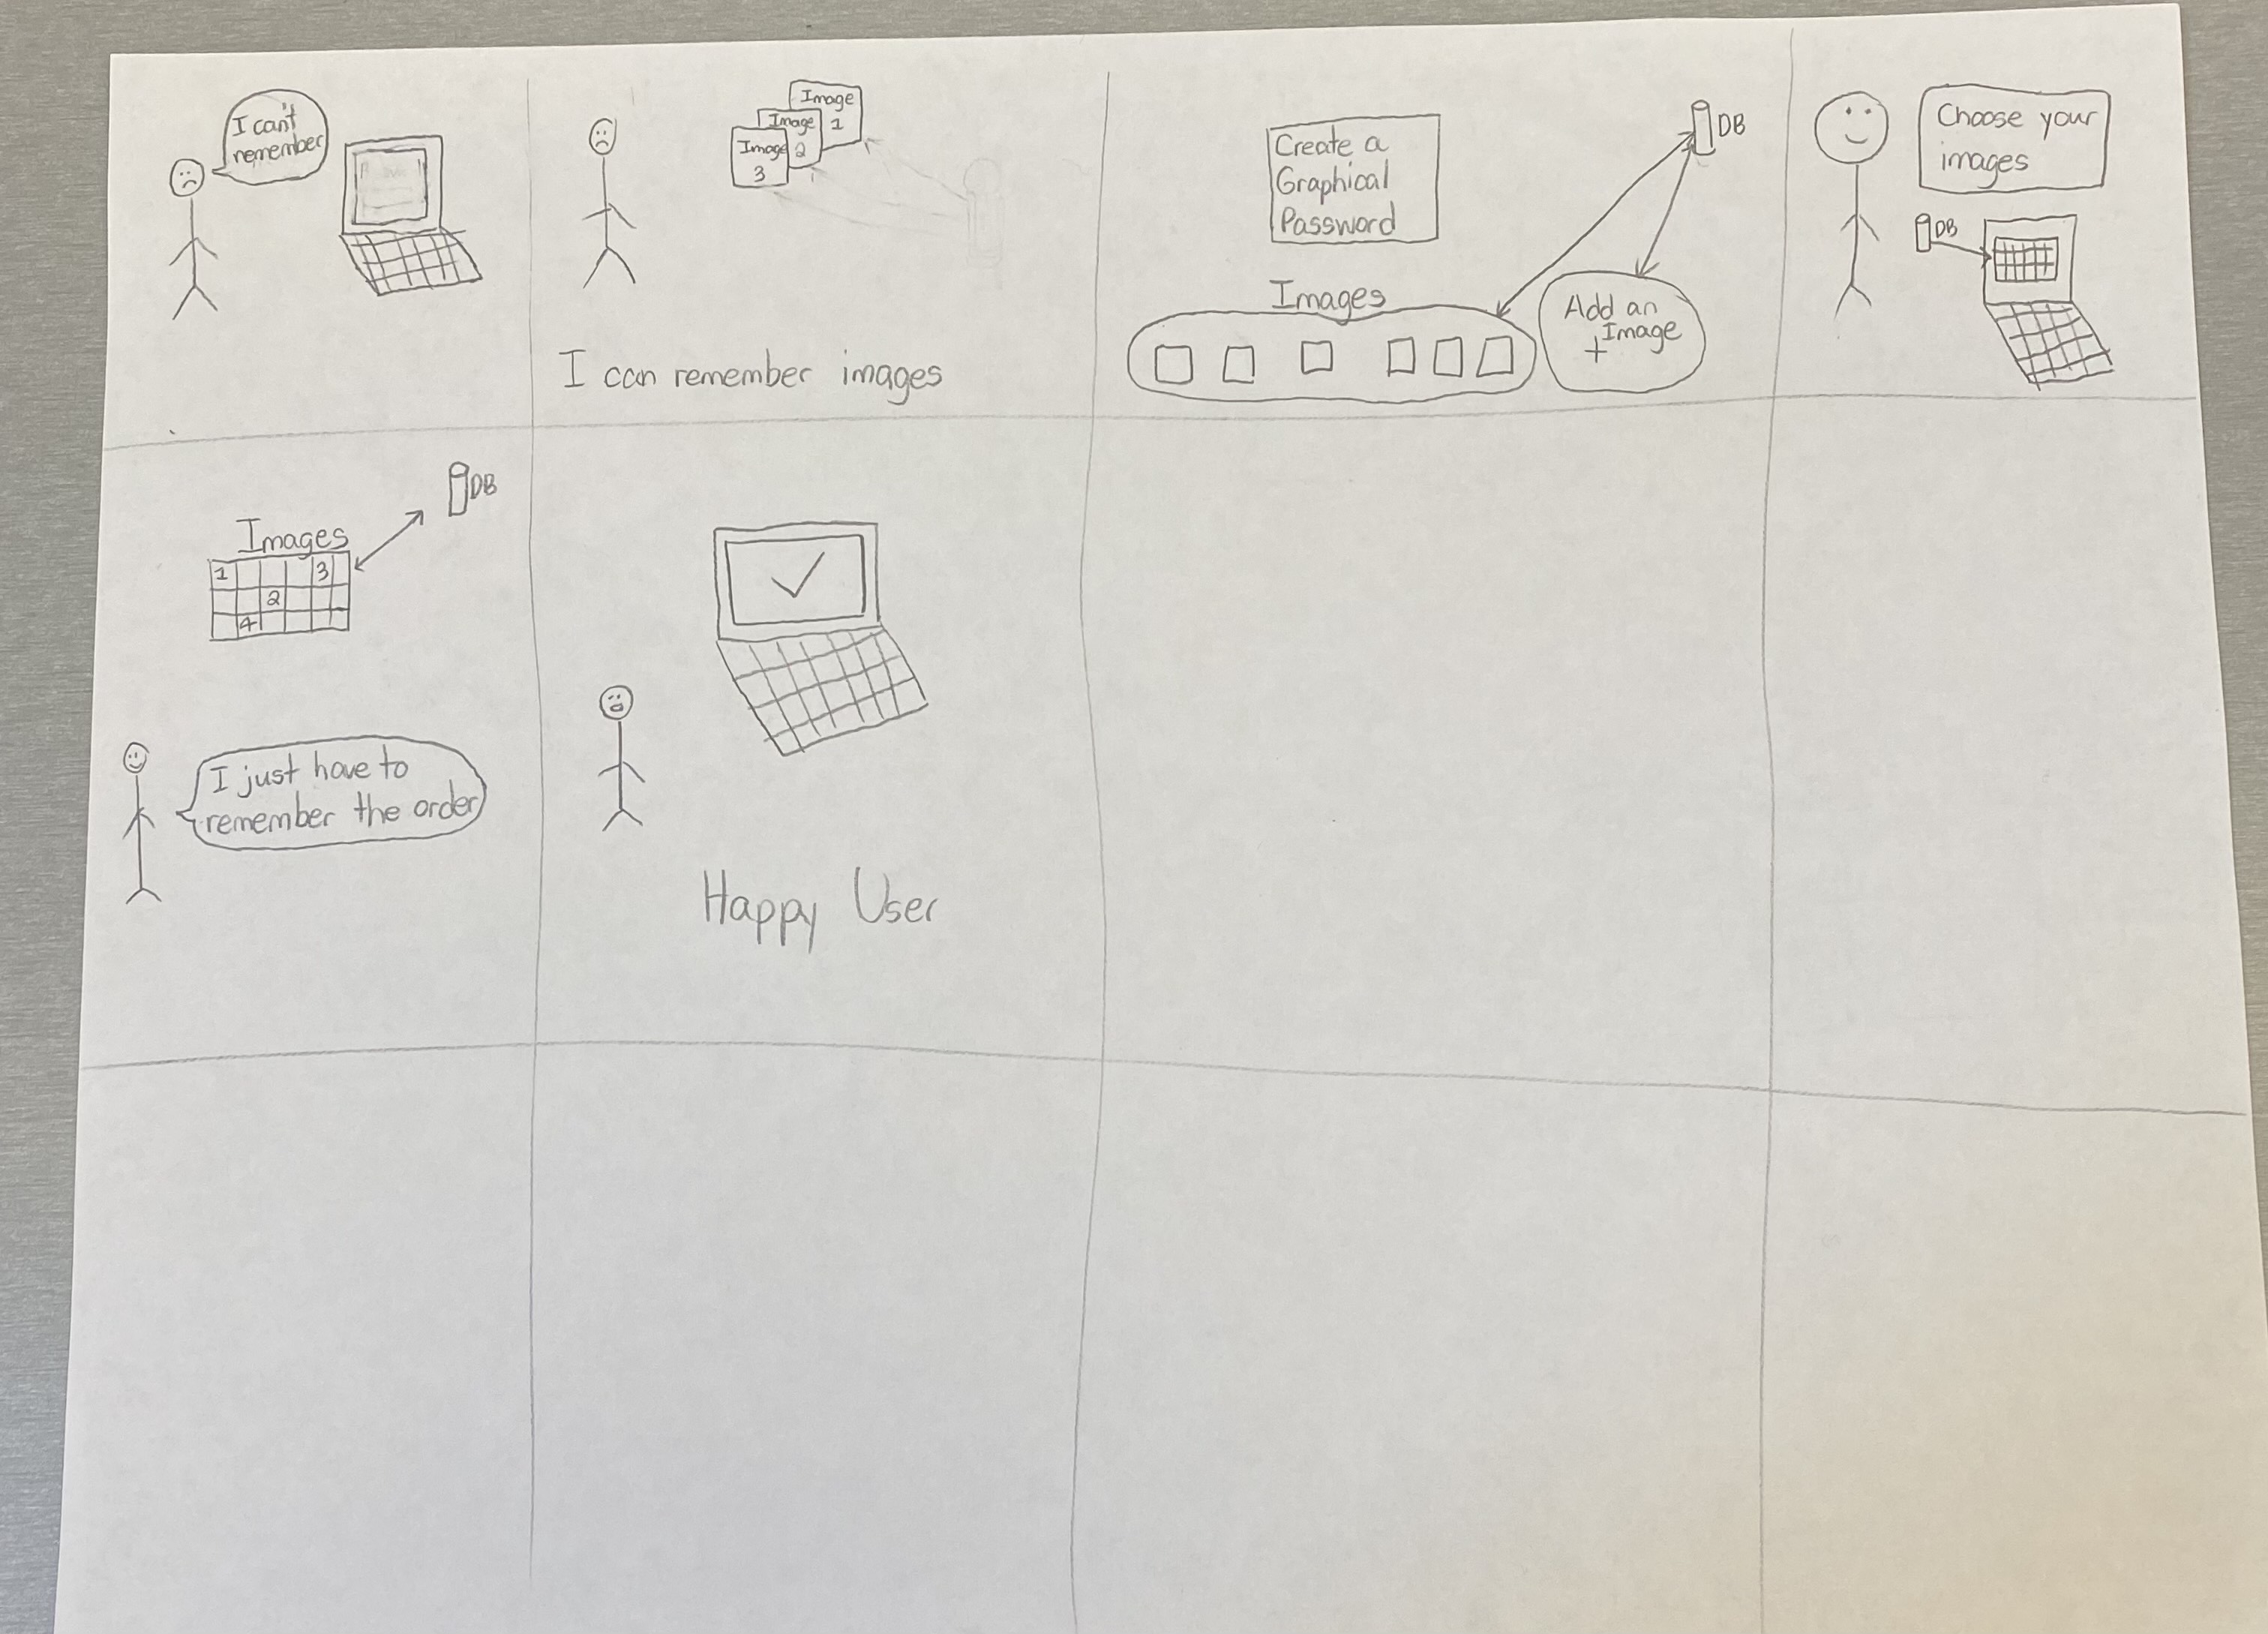 I can't
remember
Image
1
Image
2
Image
3
I can remember images
Create a
Graphical
Password
DB
Images
Add an
Image
+
Choose your
images
DB
Images
DB
1 3
2
4
I just have to
remember the order
Happy User